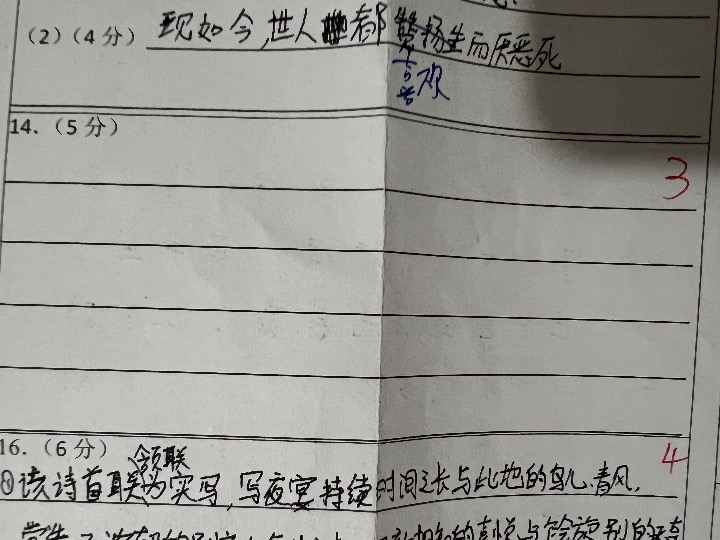 (2)(4分) 现如今,世人都赞扬生而厌恶死
喜欢
14.(5分)
3
16.(6分)
4
颔联
①该诗首联为实写,写夜宴持续时间之长与此地的鸟儿、春风,